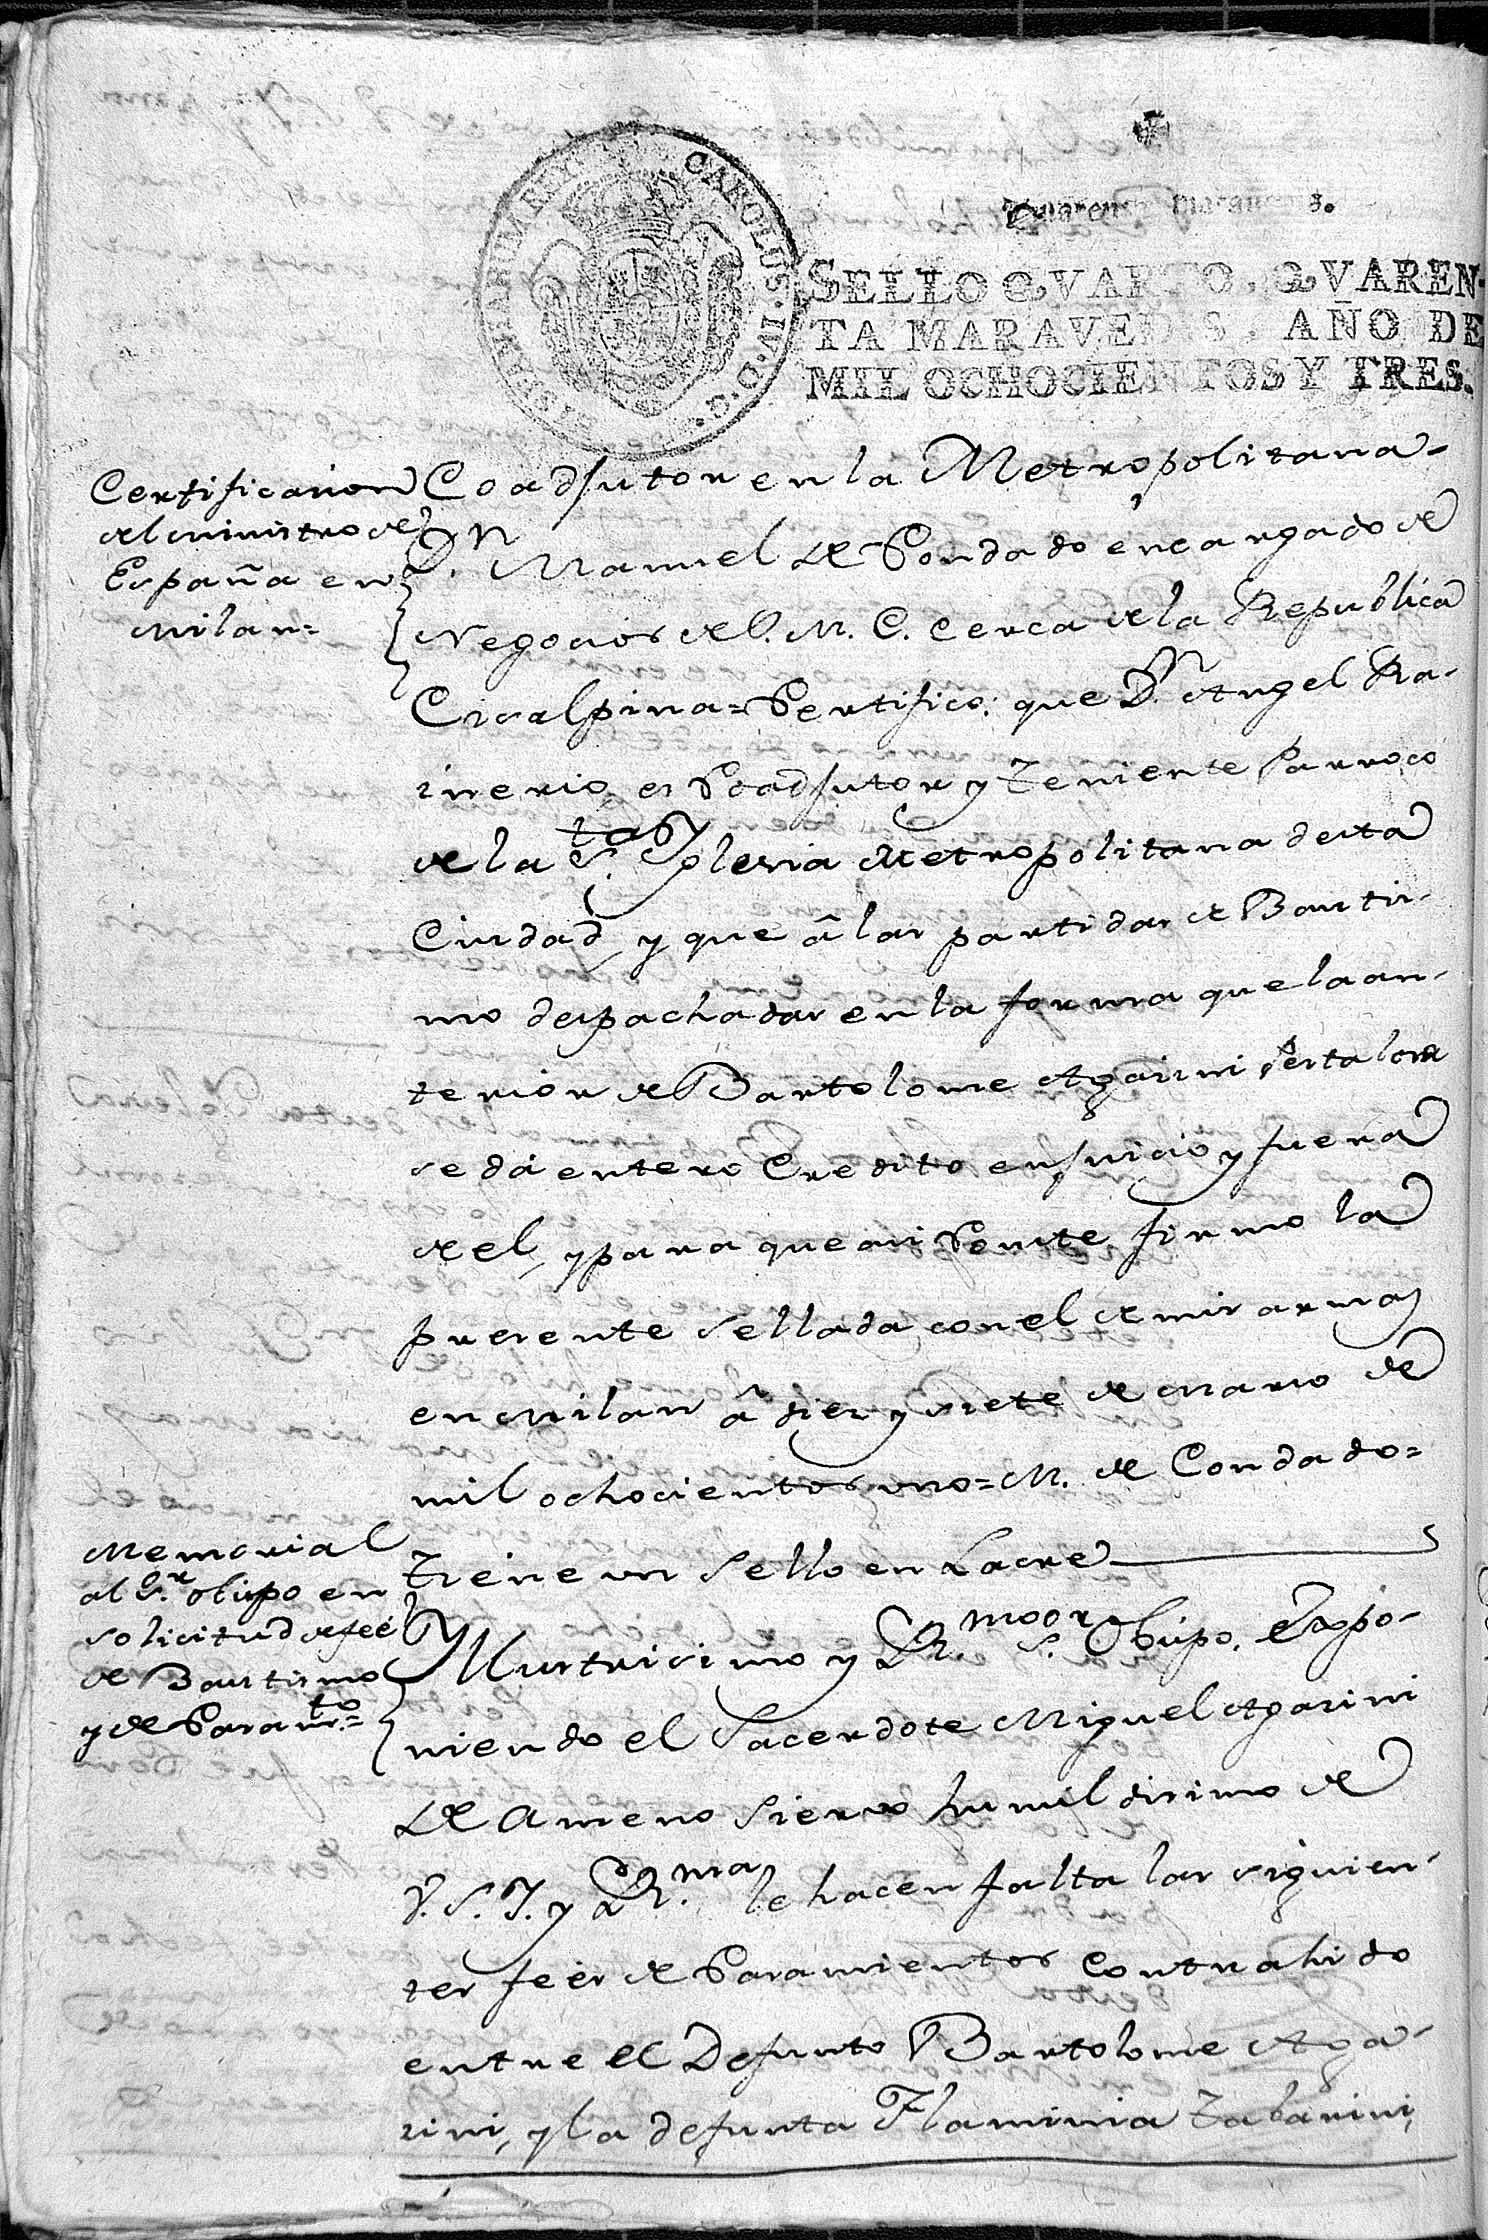 Quarenta maravedis.
CAROLUS.IV.D.G. HISPANIARUM REX
SELLO QVARTO, QVAREN-
TA MARAVEDIS, AÑO DE
MIL OCHOCIENTOS Y TRES.
Certificacion
del ministro de
España en
Milan=
Coadjutor en la Metropolitana-
Dn. Manuel de Condado encargado de
Negocios de S. M. C. cerca de la Republica
Cisalpina= Certifico: que Dn. Angel Ra-
inerio, es Coadjutor y Teniente Parroco
de la Sta. Yglesia Metropolitana desta
Ciudad, y que â las partidas de Bautis-
mo despachadas en la forma que la an-
terior de Bartolome Agazini
se dá entero Credito en juicio y fuera
de el, y para que asi Conste firmo la
presente sellada con el de mis armas
en Milan â diez y siete de Marzo de
mil ochocientos uno= M. de Condado=
Tiene un Sello en Lacre
Memorial
al Sr. obispo en
solicitud de feé
de Bautismo
y de Casamto.=
Yllustrisimo y Rmo. Sor. Obispo. Expo-
niendo el Sacerdote Miguel Agazini
de Ameno Siervo humildisimo de
V. S. Y. y Rma. le hacen falta las siguien-
tes feés de Casamientos Contrahido
entre el Defunto Bartolome Aga-
zini, y la defunta Flaminia Tabarini,